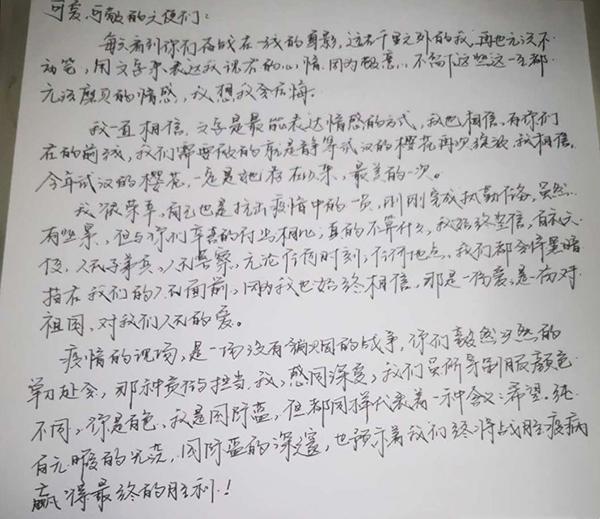 可爱,可敬的天使们:
每次看到你们奋战在一线的身影,这在千里之外的我,再也无法不
动笔,用文字来表达我现在的心情,因为愿意,不写下这些这一生都
无法磨灭的情感,我想我会后悔。
我一直相信,文字是最能表达情感的方式,我也相信,有你们
在的前线,我们需要做的就是静等武汉的樱花再次绽放,我相信,
今年武汉的樱花,一定是她存在以来,最美的一次。
我很荣幸,自己也是抗击疫情中的一员,刚刚完成执勤任务,虽然
有些累,但与你们辛苦的付出相比,真的不算什么,我始终坚信,白衣天
使,人民子弟兵,人民警察,无论任何时刻,任何地点,我们都会将黑暗
挡在我们的人民面前,因为我也始终相信,那是一份爱,是一份对
祖国,对我们人民的爱。
疫情的现场,是一场没有硝烟的战争,你们毅然决然的
单刀赴会,那种责任与担当,我,感同深受,我们虽所穿制服颜色
不同,你是白色,我是国际蓝,但都同样代表着一种含义:希望,纯
白无暇的光芒,国际蓝的深邃,也预示着我们终将战胜疫病
赢得最终的胜利!